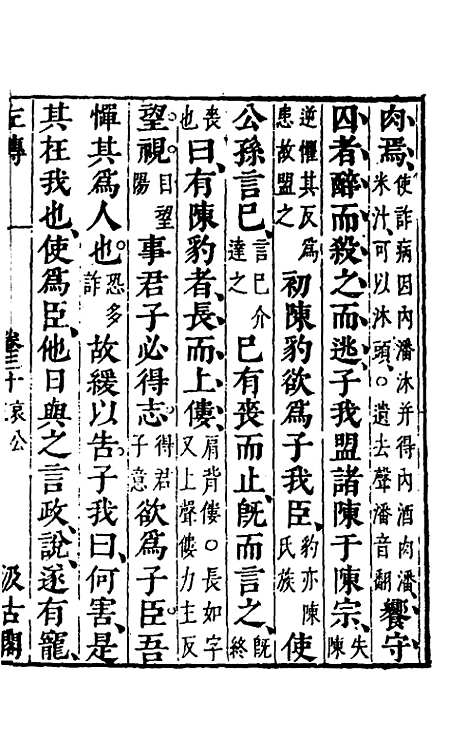 肉焉使詐病因內潘沐并得內酒肉潘米汁可以沐頭○遺去聲潘音翻饗守
囚者醉而殺之而逃子我盟諸陳于陳宗失陳
逆懼其反爲患故盟之初陳豹欲爲子我臣豹亦陳氏族使
公孫言已言已介達之已有喪而止旣而言之旣終
喪也曰有陳豹者長而上僂肩背僂○長如字又上聲僂力主反
望視目望陽事君子必得志得君子意欲爲子臣吾
憚其爲人也恐多詐故緩以告子我曰何害是
其在我也使爲臣他日與之言政說遂有寵
左傳 卷三十 哀公 汲古閣